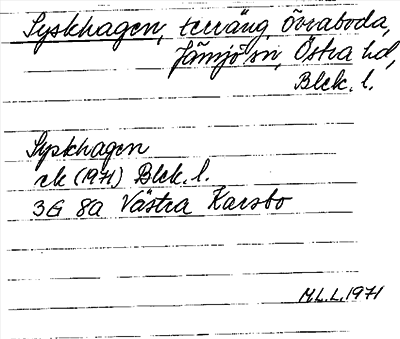 Syskhagen, terräng, Övraboda,
Jämjö sn, Östra hd,
Blek. l.
Syskhagen
ek (1971) Blek. l.
3G 8a Västra Karsbo
M.L.L. 1971